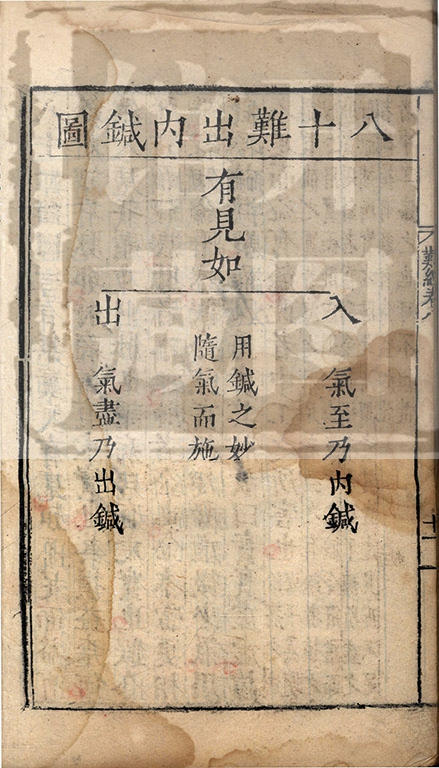 八十難出内鍼圖
有見如
入
氣至乃内鍼
用鍼之妙
隨氣而施
出
氣盡乃出鍼
難經卷八
十一